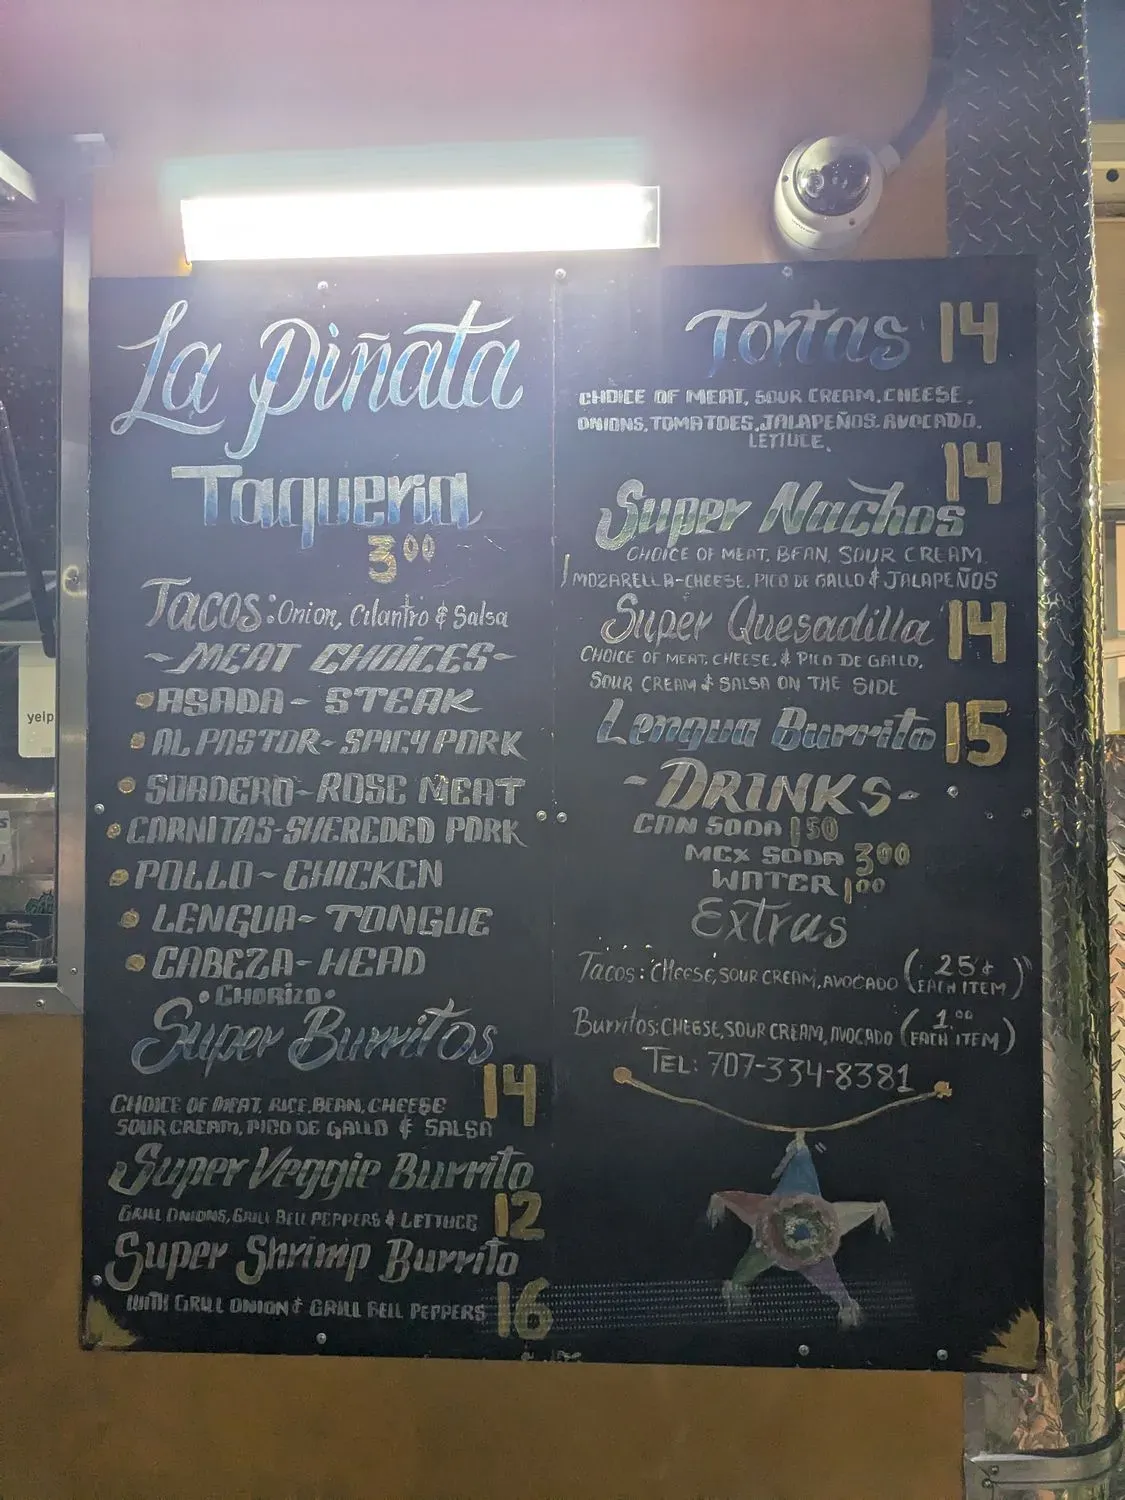 La Piñata
Taqueria
3.00
Tacos: Onion, Cilantro & Salsa
~MEAT CHOICES~
ASADA - STEAK
AL PASTOR - SPICY PORK
SUADERO - ROSE MEAT
CARNITAS - SHEREDED PORK
POLLO - CHICKEN
LENGUA - TONGUE
CABEZA - HEAD
• CHORIZO •
Super Burritos
14
CHOICE OF MEAT, RICE, BEAN, CHEESE
SOUR CREAM, PICO DE GALLO & SALSA
Super Veggie Burrito
12
GRILL ONIONS, GRILL BELL PEPPERS & LETTUCE
Super Shrimp Burrito
WITH GRILL ONION & GRILL BELL PEPPERS 16
Tortas 14
CHOICE OF MEAT, SOUR CREAM, CHEESE,
ONIONS, TOMATOES, JALAPEÑOS, AVOCADO,
LETTUCE.
14
Super Nachos
CHOICE OF MEAT, BEAN, SOUR CREAM,
MOZARELLA-CHEESE, PICO DE GALLO & JALAPEÑOS
Super Quesadilla 14
CHOICE OF MEAT, CHEESE, & PICO DE GALLO,
SOUR CREAM & SALSA ON THE SIDE
Lengua Burrito 15
- DRINKS -
CAN SODA 1.50
MEX SODA 3.00
WATER 1.00
Extras
Tacos: CHEESE, SOUR CREAM, AVOCADO (25¢ EACH ITEM)
Burritos: CHEESE, SOUR CREAM, AVOCADO (1.00 EACH ITEM)
TEL: 707-334-8381
yelp